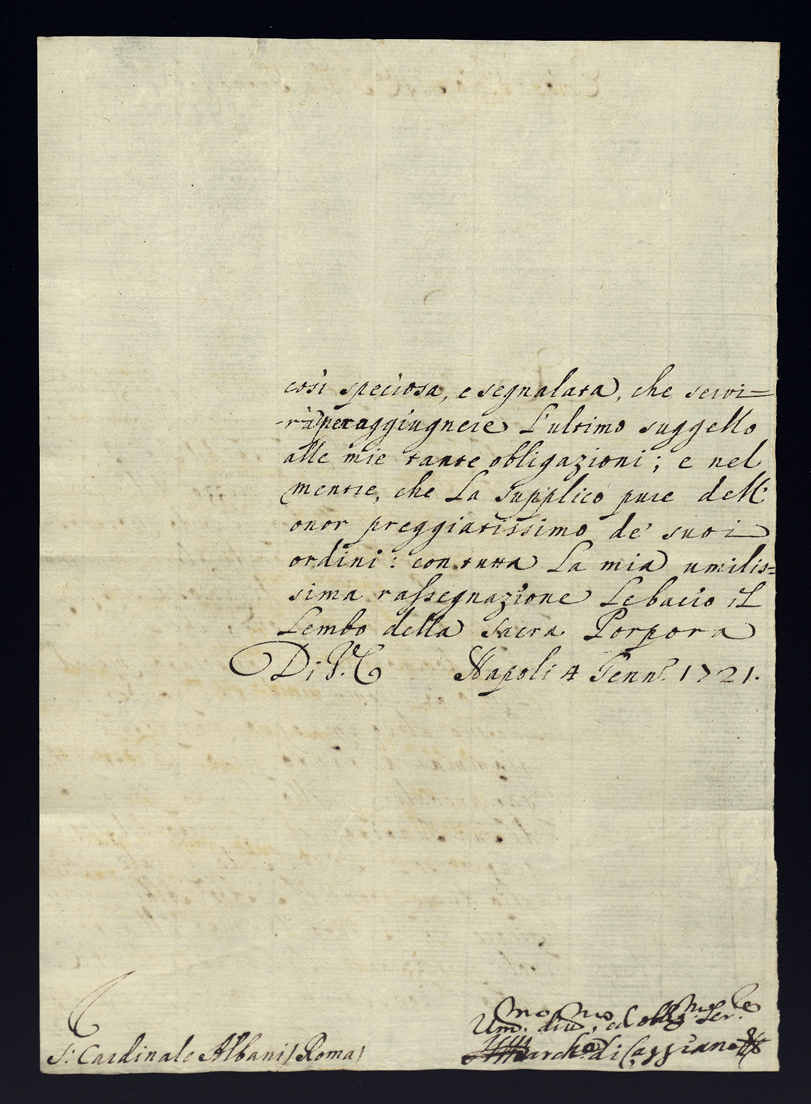 così speciosa, e segnalata, che servi=
rà per aggiugnere L'ultimo suggello
alle mie tante obligazioni; e nel
mentre, che La supplico pure dell'
onor preggiatissimo de' suoi
ordini: con tutta La mia umilis=
sima rassegnazione Le bacio il
Lembo della Sacra Porpora
Di V. E. Napoli 4 Genn.º 1721.
Um.mo div.mo, ed obblig.mo Ser.re
March.e di
S: Cardinale Albani (Roma)